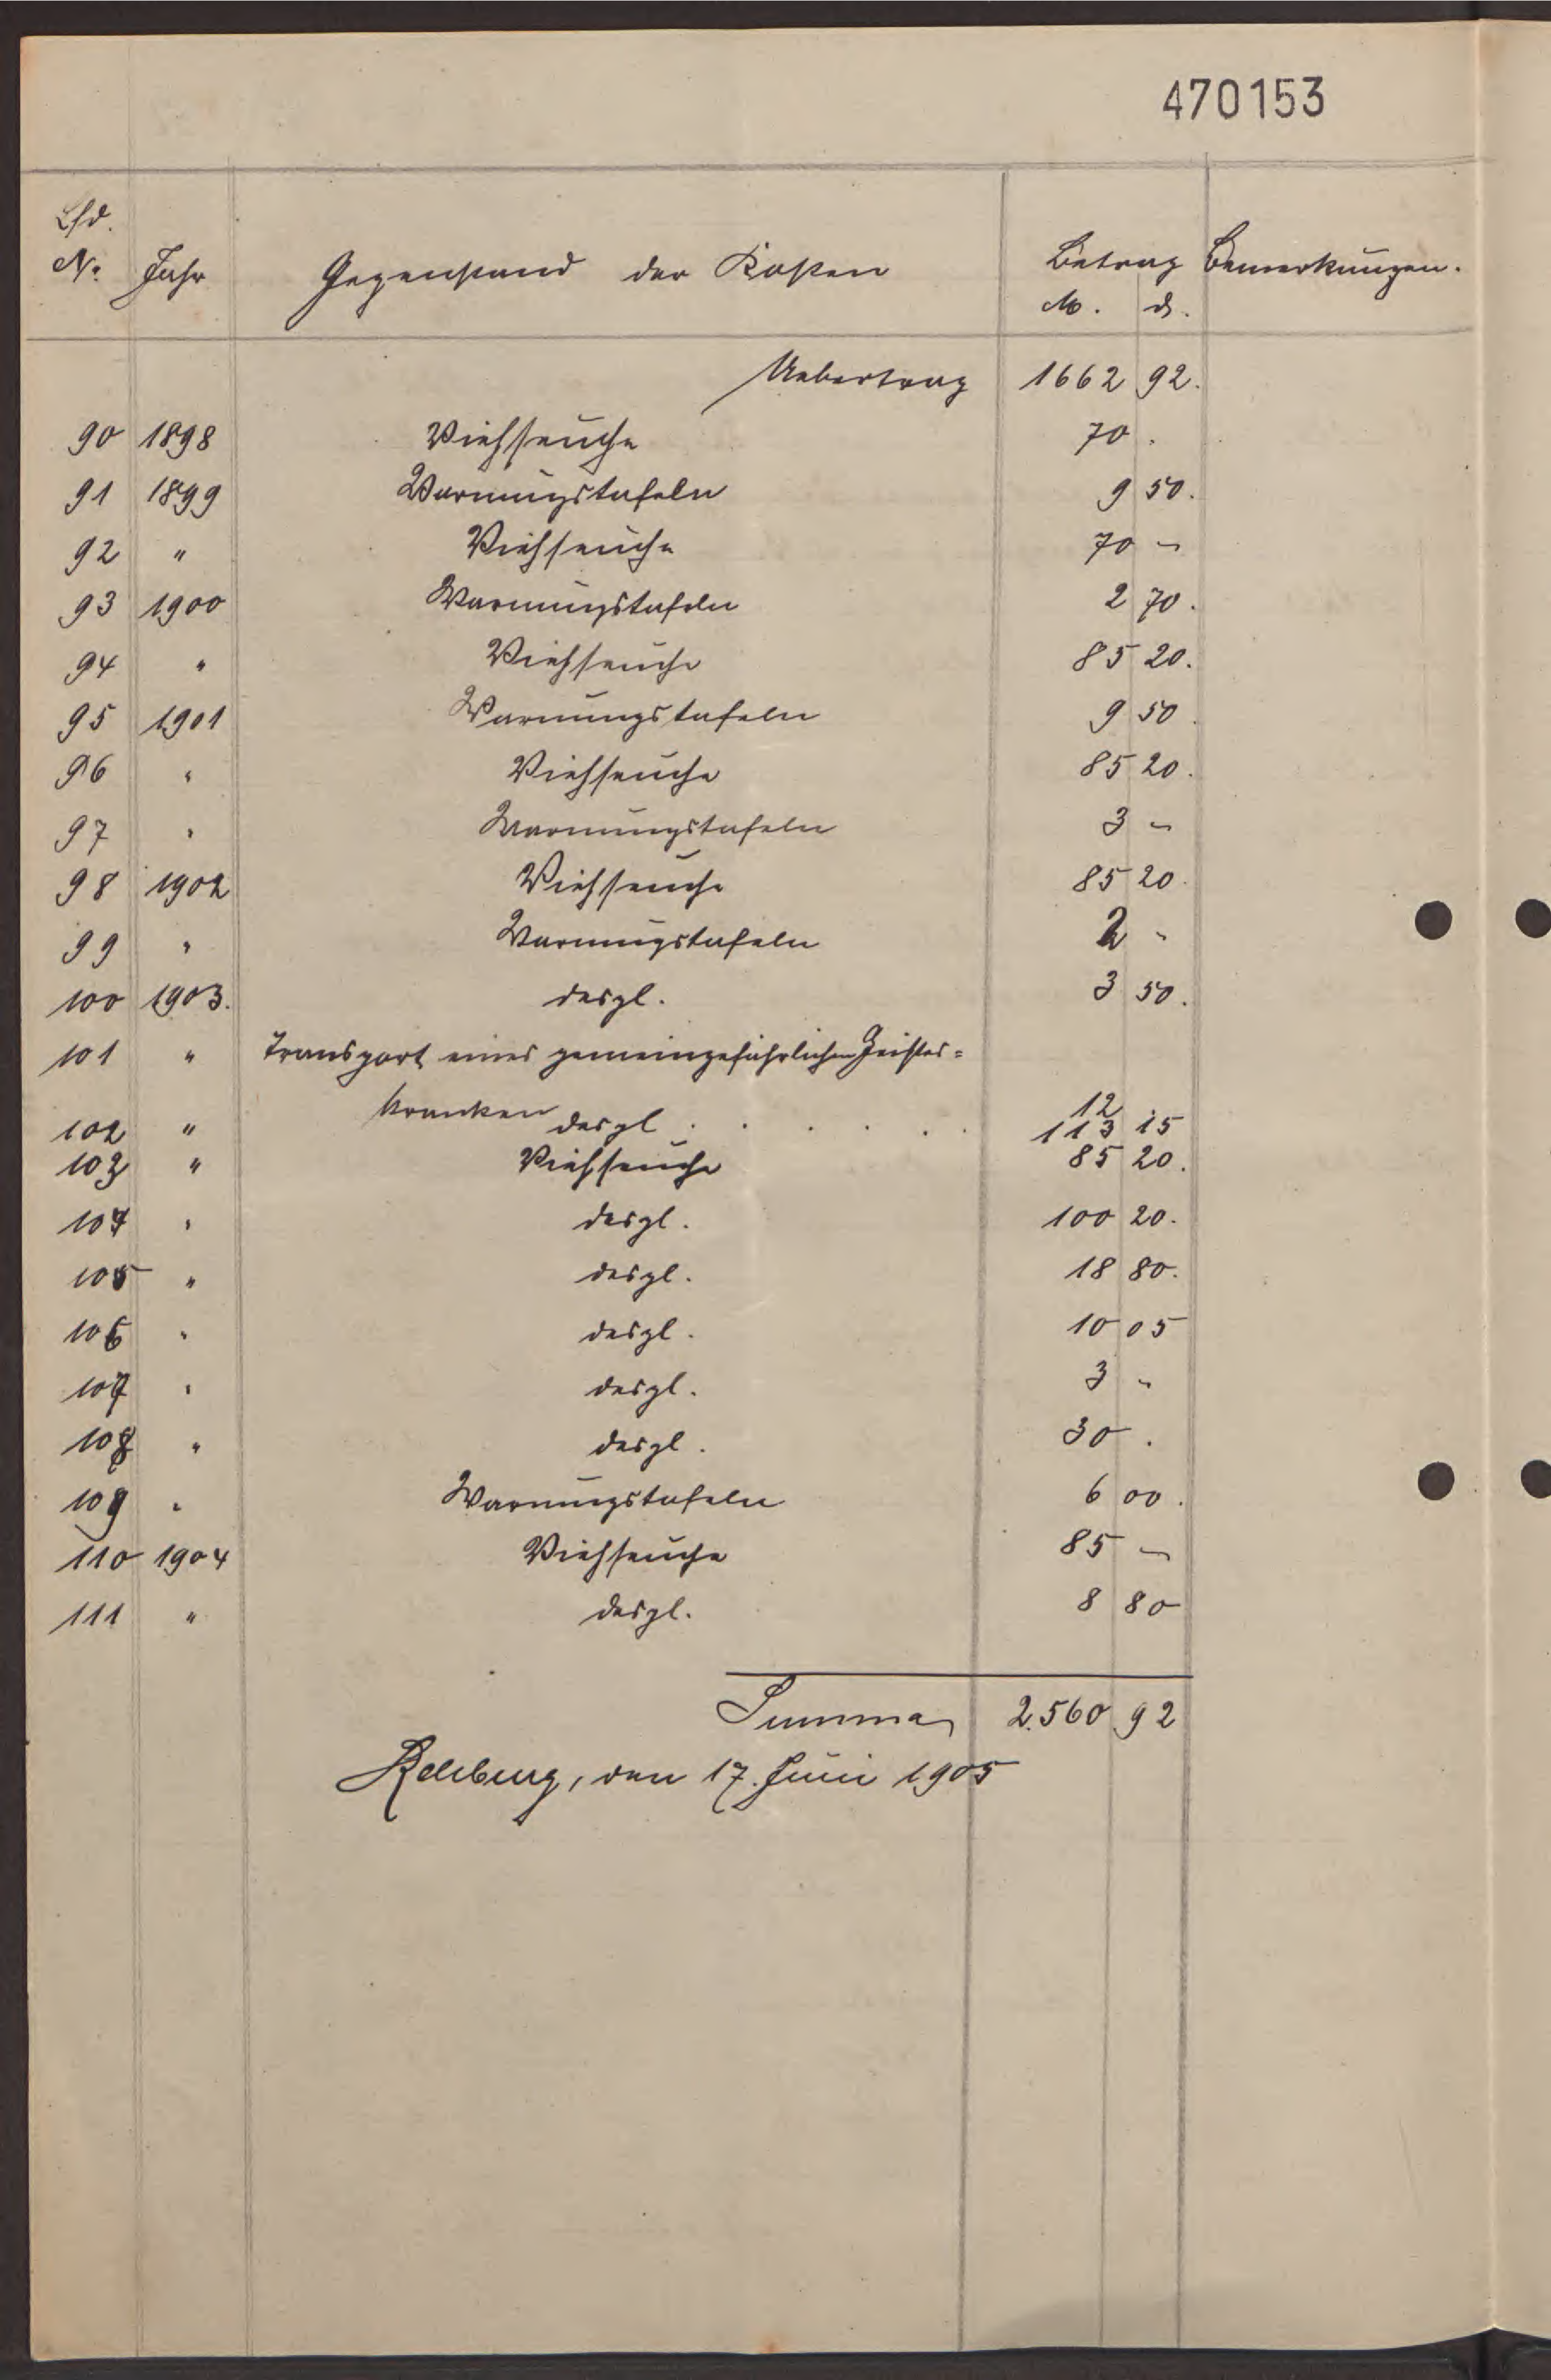 470153
Lfd.
No. Jahr Gegenstand der Kosten Betrag Bemerkungen.
M. d.
Uebertrag 1662 92.
90 1898 Viehseuche 70 .
91 1899 Warnungstafeln 9 50.
92 " Viehseuche 70 –
93 1900 Warnungstafeln 2 70.
94 " Viehseuche 85 20.
95 1901 Warnungstafeln 9 50.
96 " Viehseuche 85 20.
97 " Warnungstafeln 3 –
98 1902 Viehseuche 85 20.
99 " Warnungstafeln 2 -
100 1903. desgl. 3 50.
101 " Transport eines gemeingefährlichen Geistes=
kranken 12
102 " desgl . . . . . . 113 15
103 " Viehseuche 85 20.
104 " desgl. 100 20.
105 " desgl. 18 80.
106 " desgl. 10 05
107 " desgl. 3 "
108 " desgl. 30 .
109 " Warnungstafeln 6 00.
110 1904 Viehseuche 85 –
111 " desgl. 8 80
Summa 2.560 92
Rehburg, den 17. Juni 1905